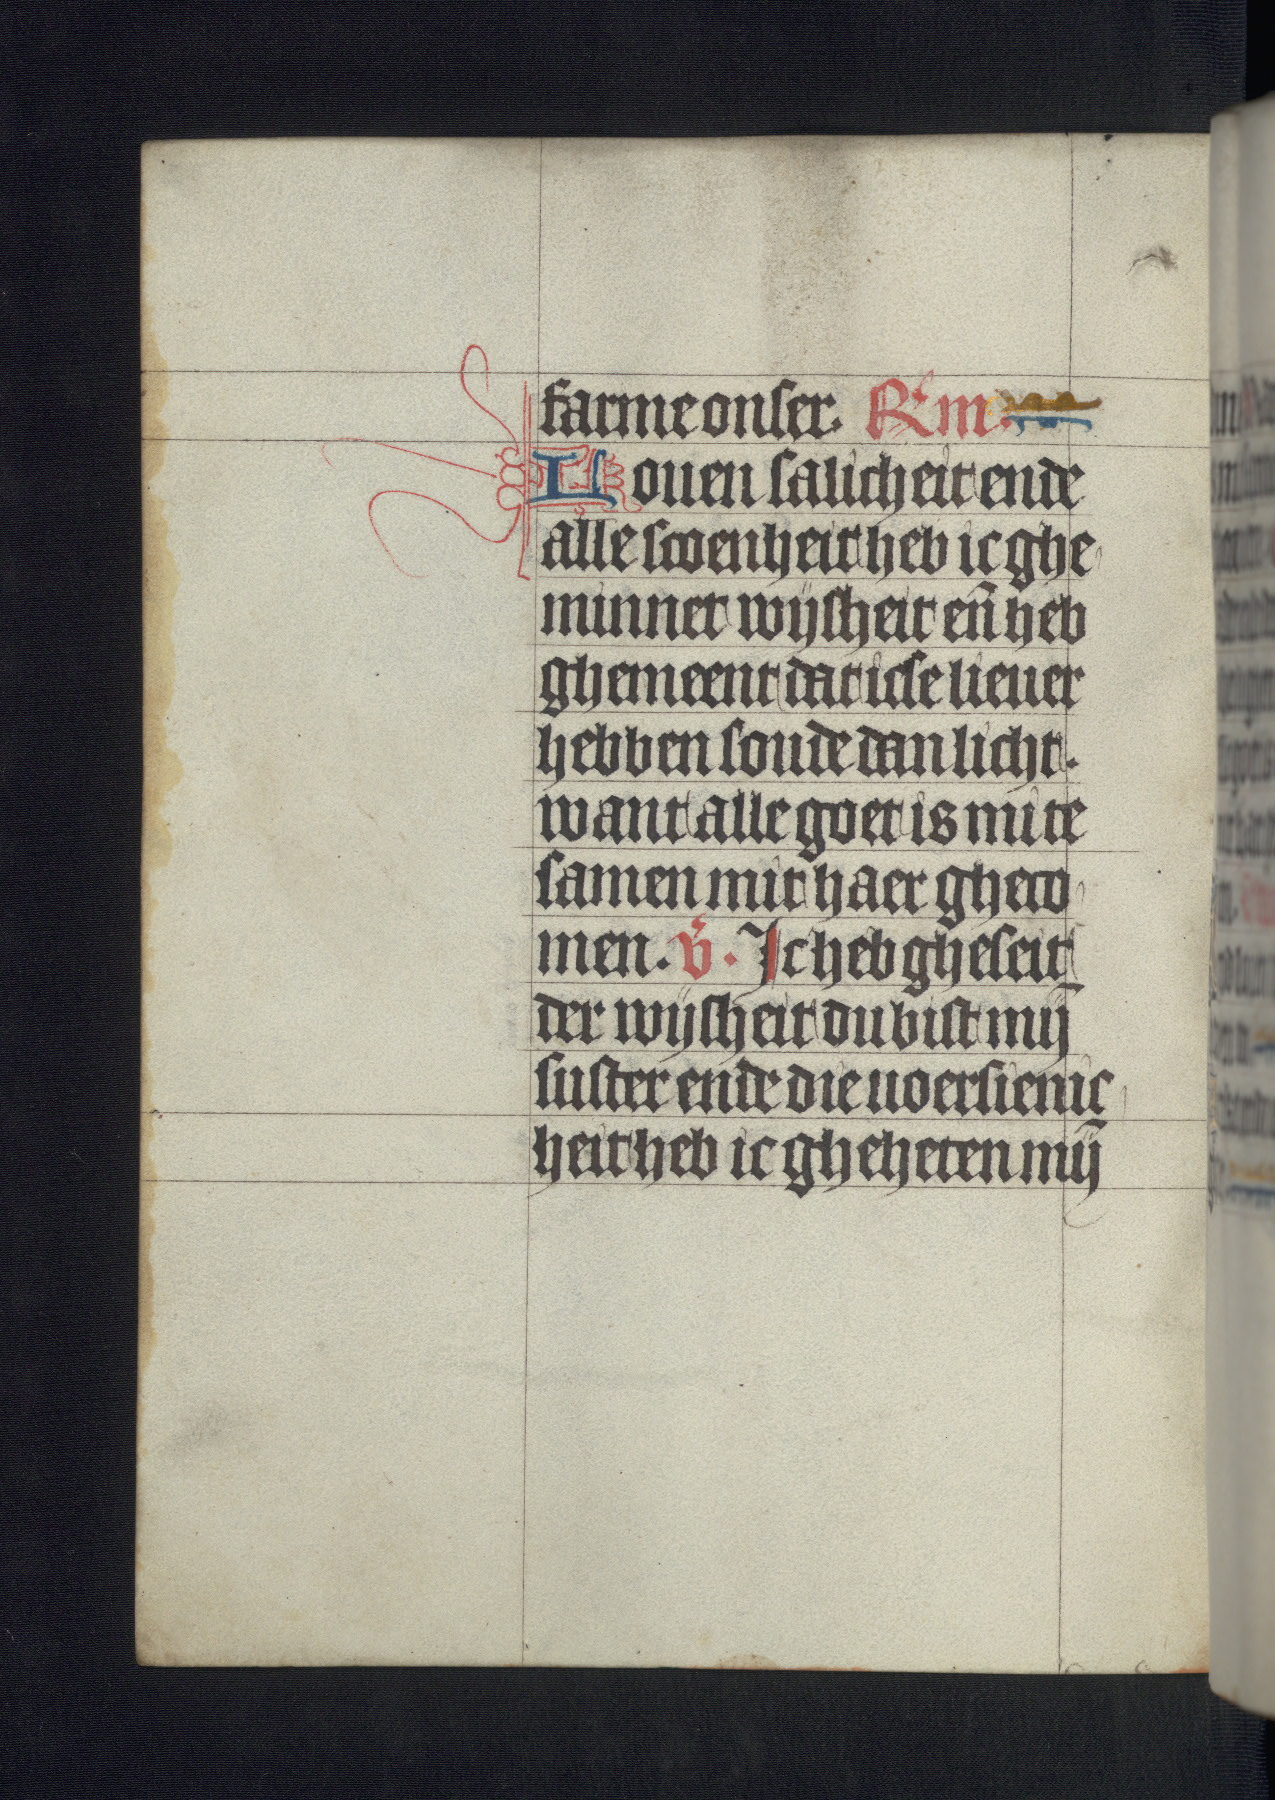 farme onser. R̃m.
Bouen salicheit ende
alle scoenheit heb ic ghe
minnet wijsheit eñ heb
ghemeent dat icse lieuer
hebben soude dan licht.
want alle goet is mi te
samen mit haer gheco
men. v̄. Ic heb gheseit
der wijsheit du bist mij̄
suster ende die uoersienic
heit heb ic gheheten mij̄